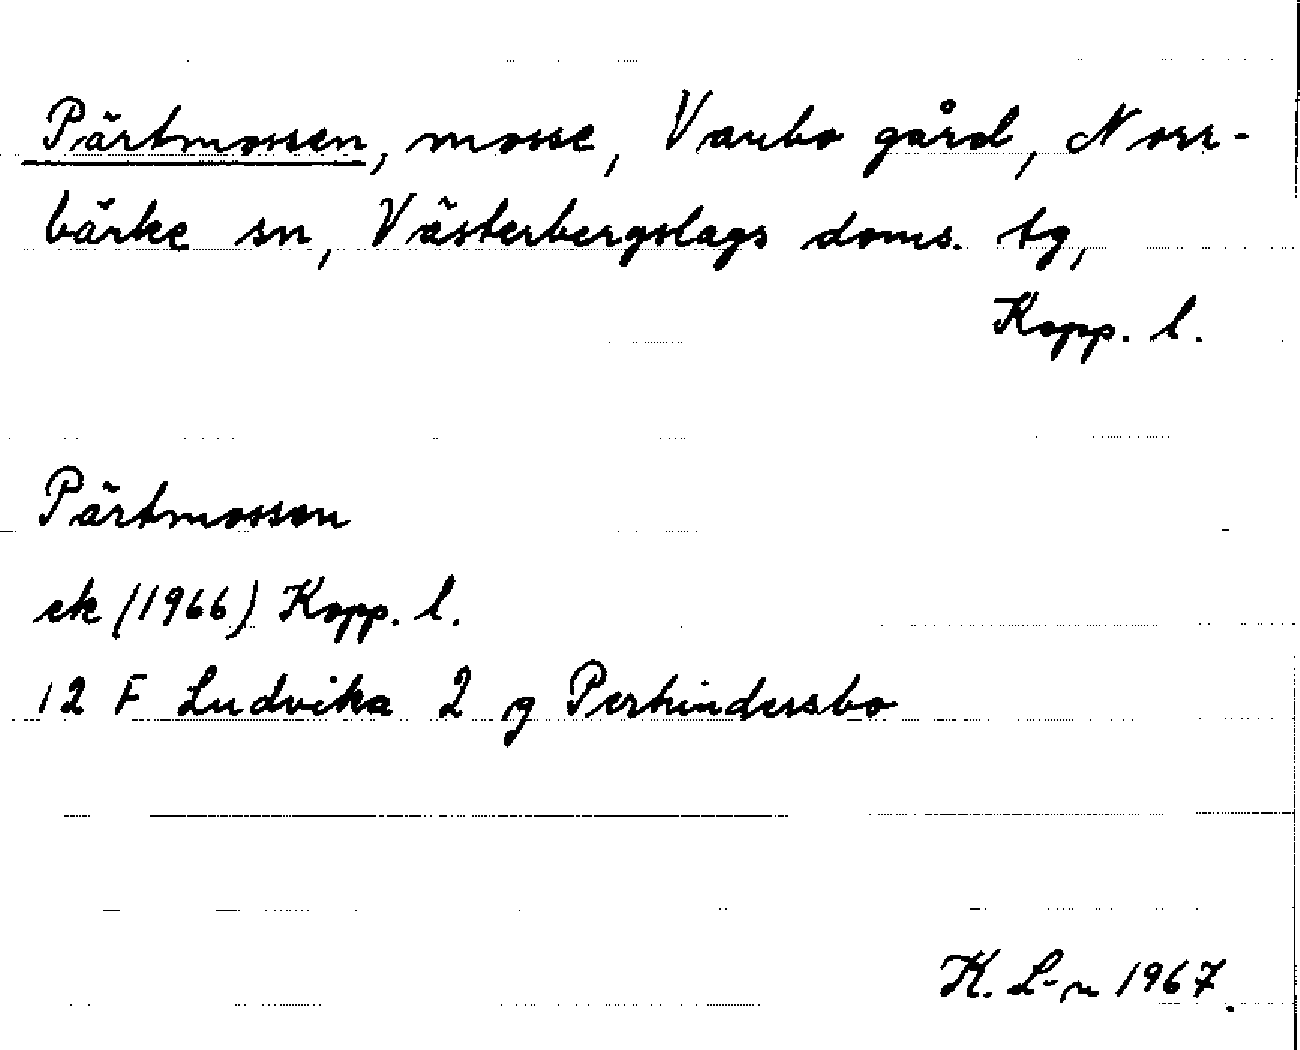 Pärtmossen, mosse, Vanbo gård, Norr-
bärke sn, Västerbergslags doms. tg,
Kopp. l.
Pärtmossen
ek (1966) Kopp. l.
12 F Ludvika 2 g Perhindersbo
K. L-n 1967.